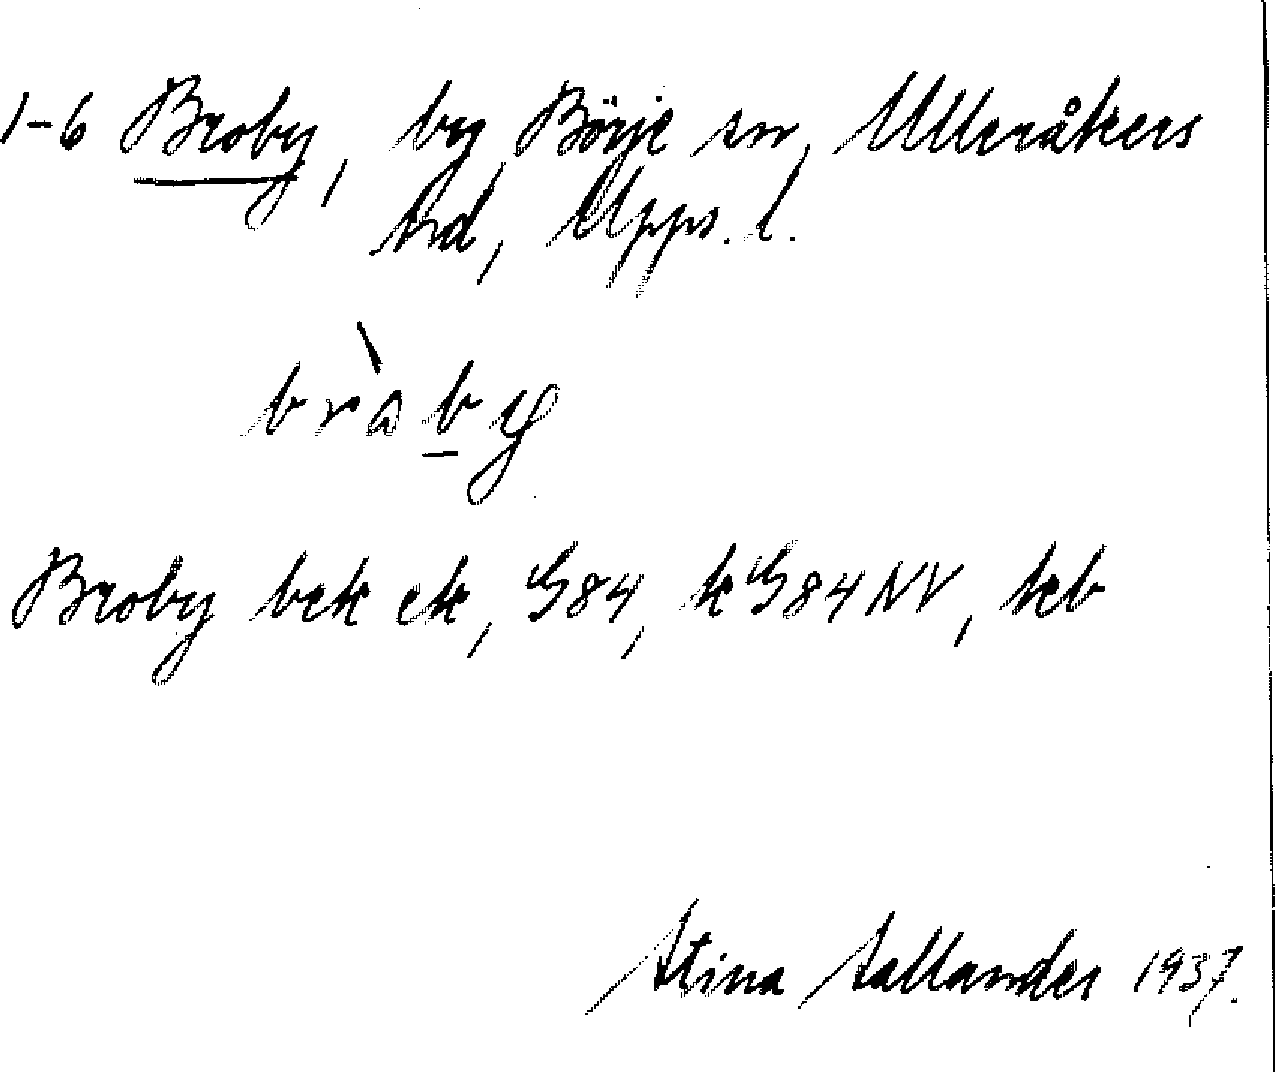 1-6 Broby, by, Börje sn, Ulleråkers
hd, Upps. l.
bràby
Broby bek ek, G84, kG84NV, jeb
Stina Sallander 1937.